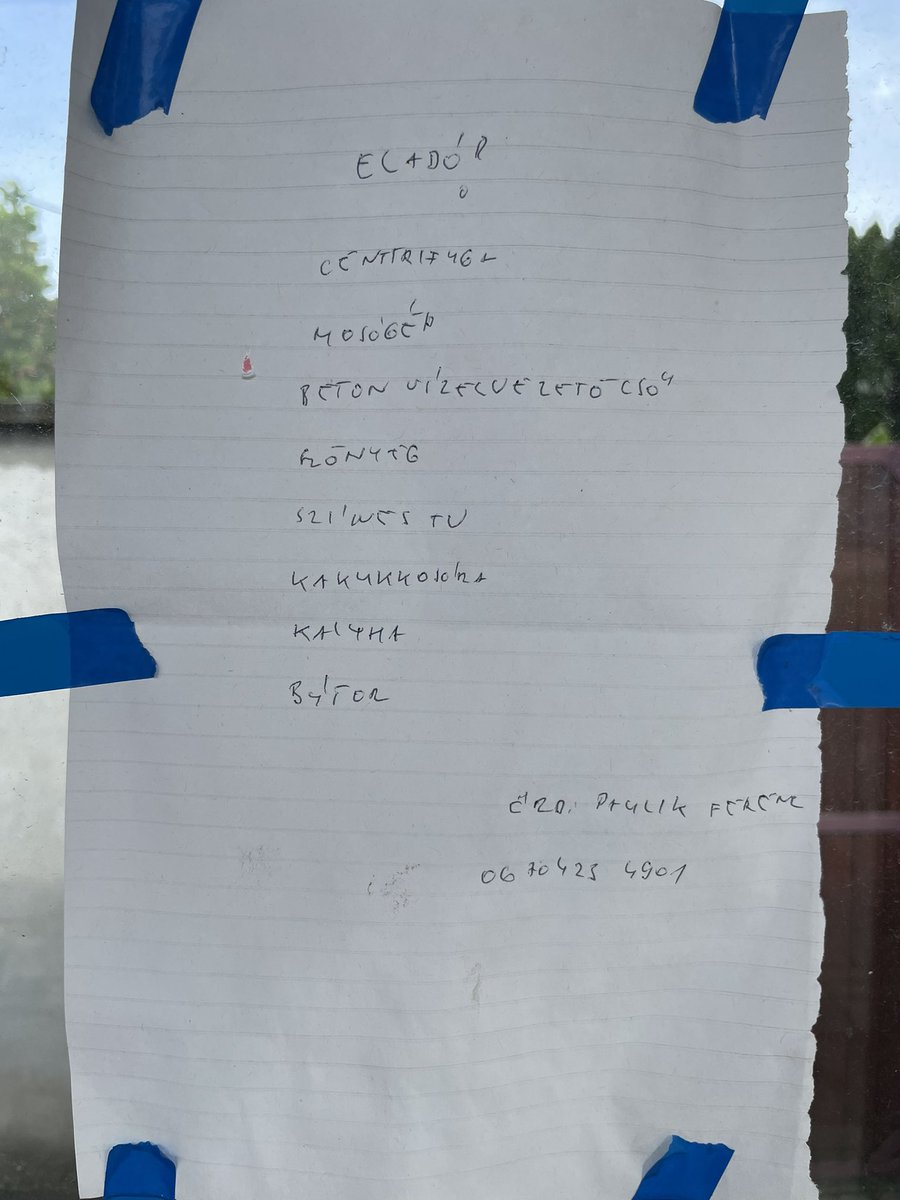 ELADÓ
CENTRIFUGA
MOSÓGÉP
BETON VÍZELVEZETŐ CSŐ
SZŐNYEG
SZÍNES TV
KAKUKKOSÓRA
KÁLYHA
BÚTOR
ÉRD: PAULIK FERENC
0670425 4901